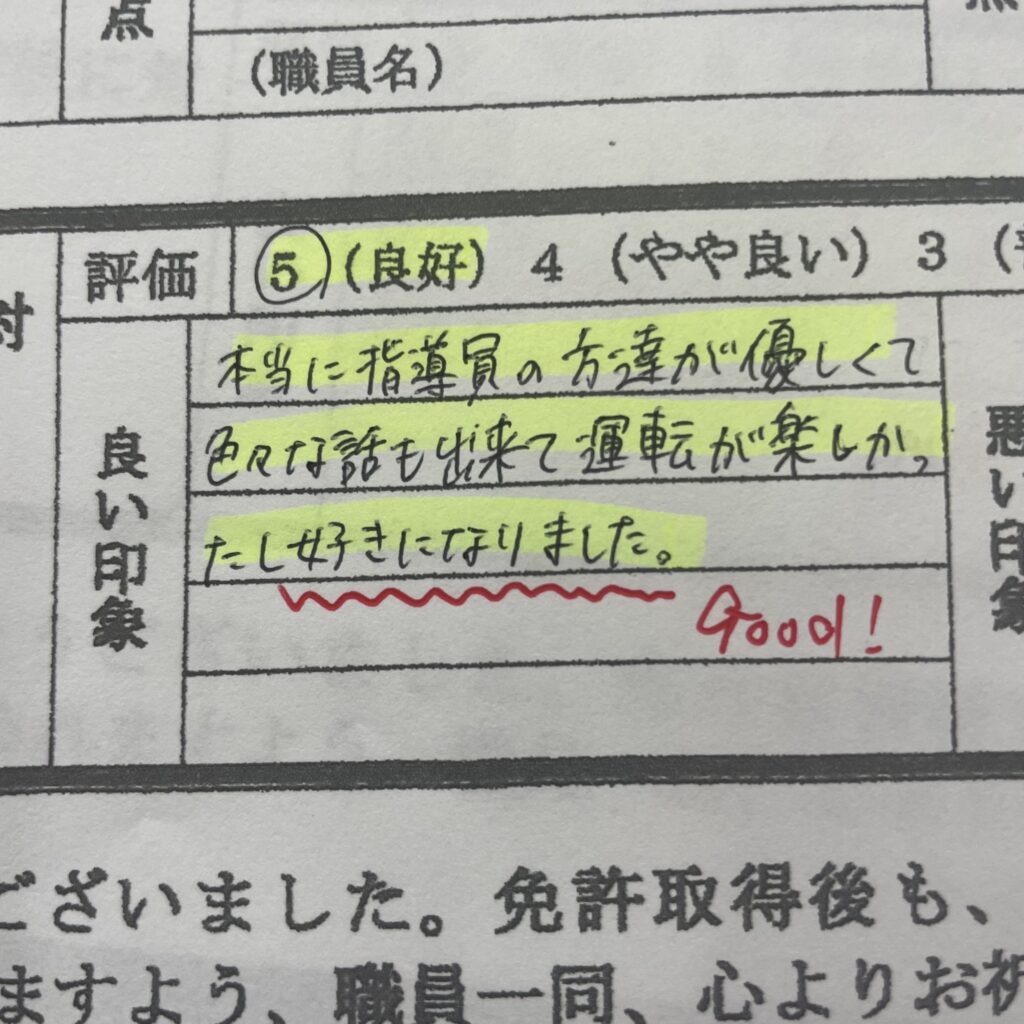 点
(職員名)
評価 5 (良好) 4 (やや良い) 3 (
良い印象
本当に指導員の方達が優しくて
色々な話も出来て運転が楽しかっ
たし好きになりました。
Good!
悪い印象
ございました。免許取得後も、
ますよう、職員一同、心よりお祈